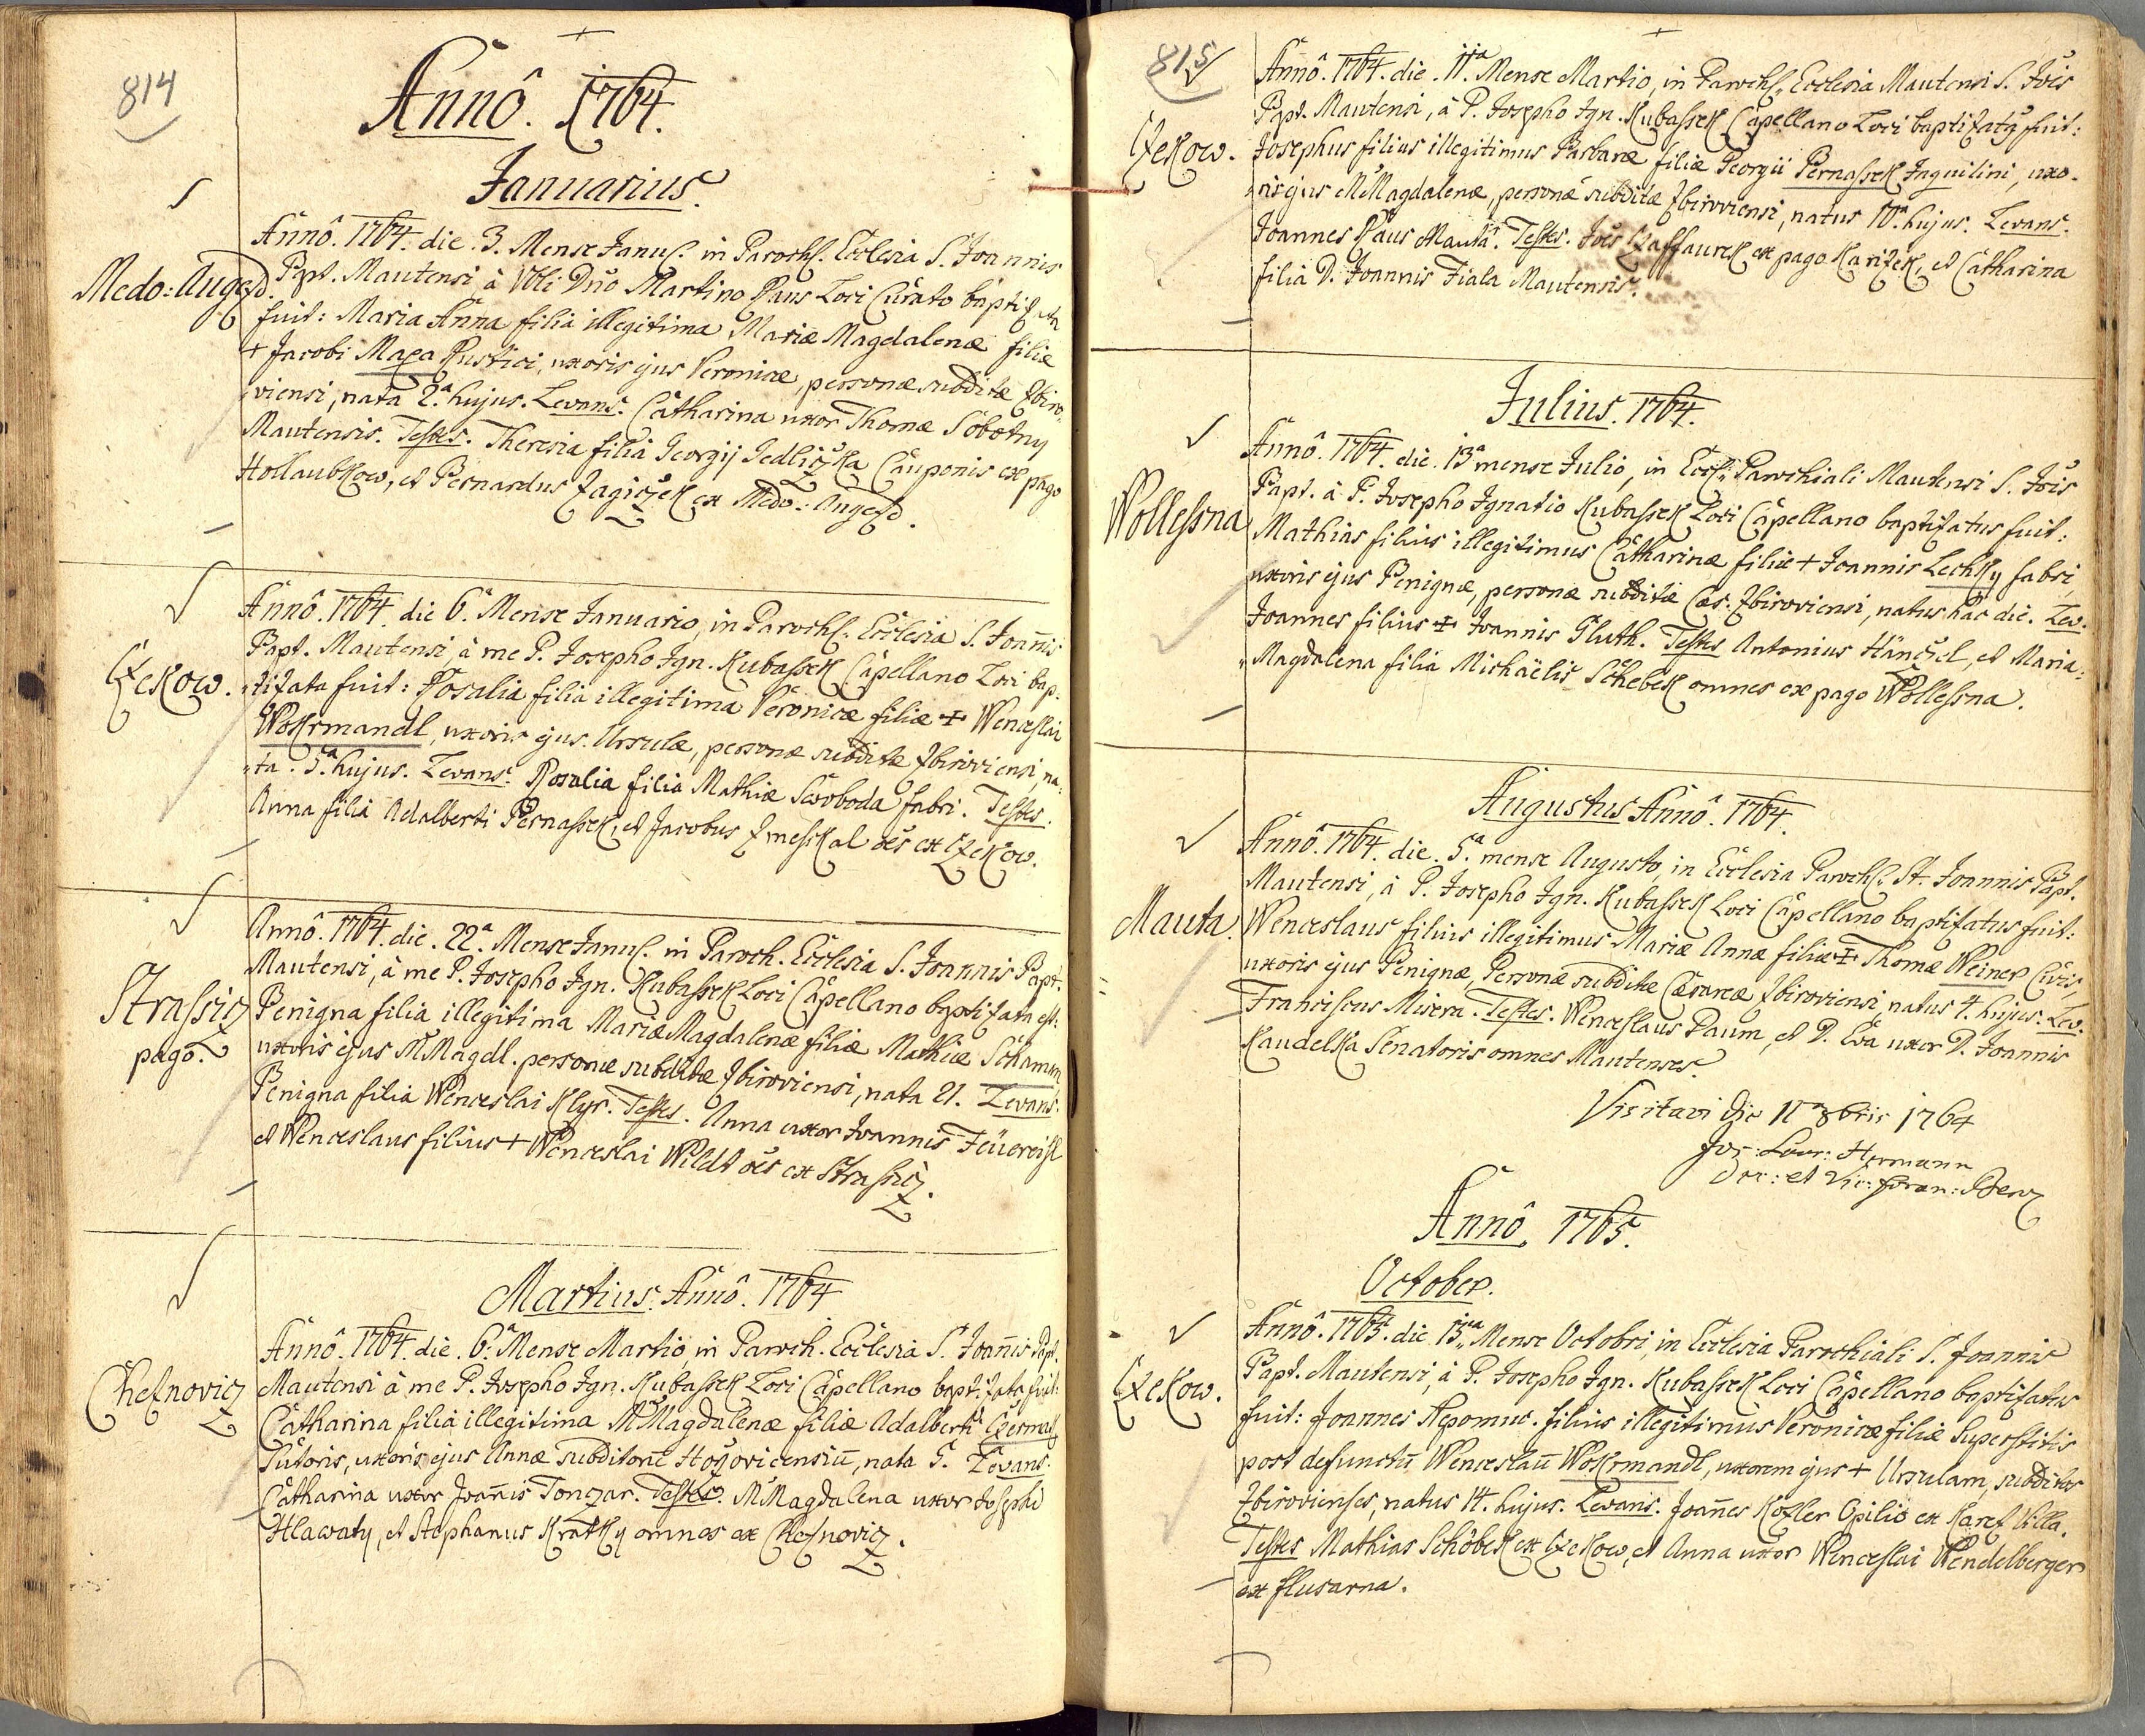 814
Annô. 1764.
Januarius.
Medo: Augezd.
Annô. 1764. die. 3. Mense Janu. in Paroch. Ecclesia S. Joannis
Bapt. Mautensi à Dño Martino Paus Loci Curato baptizata
fuit: Maria Anna filia illegitima Mariæ Magdalenæ filiæ
+ Jacobi Maxa Rustici, uxoris ejus Veronicæ, personæ subditæ Zbiro„
„viensi, nata 2.a hujus. Levans. Catharina uxor Thomæ Sobotny
Mautensis. Testes. Theresia filia Georgij Jedliczka Cauponis ex pago
Hollaubkow, et Bernardus Zagiczek ex Medo: Augezd.
Czekow.
Annô. 1764. die 6.a Mense Januario, in Paroch. Ecclesia S. Joañis
Bapt. Mautensi, à me P. Josepho Ign. Kubassek Capellano Loci bap„
„tizata fuit: Rosalia filia illegitima Veronicæ filiæ + Wenceslai
Wokrmandl, uxoris ejus. Ursulæ, personæ subditæ Zbiroviensi, na„
„ta. 5.a hujus. Levans. Rosalia filia Mathiæ Swoboda fabri. Testes.
Anna filia Adalberti Bernassek, et Jacobus Zmeskal oẽs ex Czekow.
Strassicz
pago.
Annô. 1764. die. 22.a Mense Janu. in Paroch. Ecclesia S. Joannis Bapt.
Mautensi, à me P. Josepho Ign. Kubassek Loci Capellano baptizata est:
Benigna filia illegitima Mariæ Magdalenæ filiæ Mathiæ Schaman
uxoris ejus M Magdl. personæ subditæ Zbiroviensi, nata 21. Levans.
Benigna filia Wenceslai Klyr. Testes. Anna uxor Joannis Feüereisl
et Wenceslaus filius + Wenceslai Wildt oẽs ex Strassicz.
Martius. Annô. 1764
Cheznovicz
Annô. 1764. die. 6.a Mense Martio, in Paroch. Ecclesia S. Joañis Bapt.
Mautensi à me P. Josepho Ign. Kubassek Loci Capellano baptizata fuit:
Catharina filia illegitima M Magdalenæ filiæ Adalberti Czermak
Sutoris, uxoris ejus Annæ subditorũ Horzovicensiũ, nata 5. Levans.
Catharina uxor Joañis Tonczar. Testes. M Magdalena uxor Josephi
Hlawaty, et Stephanus Kratky omnes ex Cheznovicz.
815
Czekow.
Annô. 1764. die. 11.a Mense Martio, in Paroch. Ecclesia Mautensi S. Jois
Bapt. Mautensi, à P. Josepho Ign. Kubassek Capellano Loci baptizatq fuit:
Josephus filius illegitimus Barbaræ filiæ Georgii Bernassek Inquilini, uxo„
„ris ejus M Magdalenæ, personæ subditæ Zbiroviensi, natus 10.a hujus. Levans.
Joannes Paus Mauta. Testes. Joẽs ex pago Karizek, et Catharina
filia D. Joannis Fiala Mautensis.
Julius. 1764.
Wollessna
Annô. 1764. die. 13.a mense Julio, in Eccl. Parochiali Mautensi S. Jois
Bapt. à P. Josepho Ignatio Kubassek Loci Capellano baptizatus fuit:
Mathias filius illegitimus Catharinæ filiæ + Joannis Lechky fabri,
uxoris ejus Benignæ, personæ subditæ Cæs. Zbiroviensi, natus hac die. Lev.
Joannes filius + Joannis Gluth. Testes Antonius Hänczel, et Maria„
„Magdalena filia Michaëlis Schebek omnes ex pago Wollessna.
Augustus Annô. 1764.
Mauta.
Annô. 1764. die. 5.a mense Augusto, in Ecclesia Paroch. St. Joannis Bapt.
Mautensi, à P. Josepho Ign. Kubassek Loci Capellano baptizatus fuit:
Wenceslaus filius illegitimus Mariæ Annæ filiæ + Thomæ Weiner Civis,
uxoris ejus Benignæ, Personæ subditæ Cæsareæ Zbiroviensi, natus 4. hujus. Lev.
Franciscus Misera. Testes. Wenceslaus Baum, et D. Eva uxor D. Joannis
Kaudelka Senatoris omnes Mautenses.
Visitavi die 11a 8bris 1764
Jos: Laur: Hermann
Dec: et Vic: foran:
Annô. 1765.
October.
Czekow.
Annô. 1765. die 15.„a Mense Octobri, in Ecclesia Parochiali S. Joannis
Bapt. Mautensi, à P. Josepho Ign. Kubassek Loci Capellano baptizatus
fuit: Joannes Nepomuc. filius illegitimus Veronicæ filiæ Superstitis
post defunctũ Wenceslaũ Wokrmandl, uxorem ejus + Ursulam, subditos
Zbirovienses, natus 14. hujus. Levans. Joañes Kozler Opilio ex Karez Villa.
Testes Mathias Schöbek ex Czekow, et Anna uxor Wenceslai Wendelberger
ex flusarna.